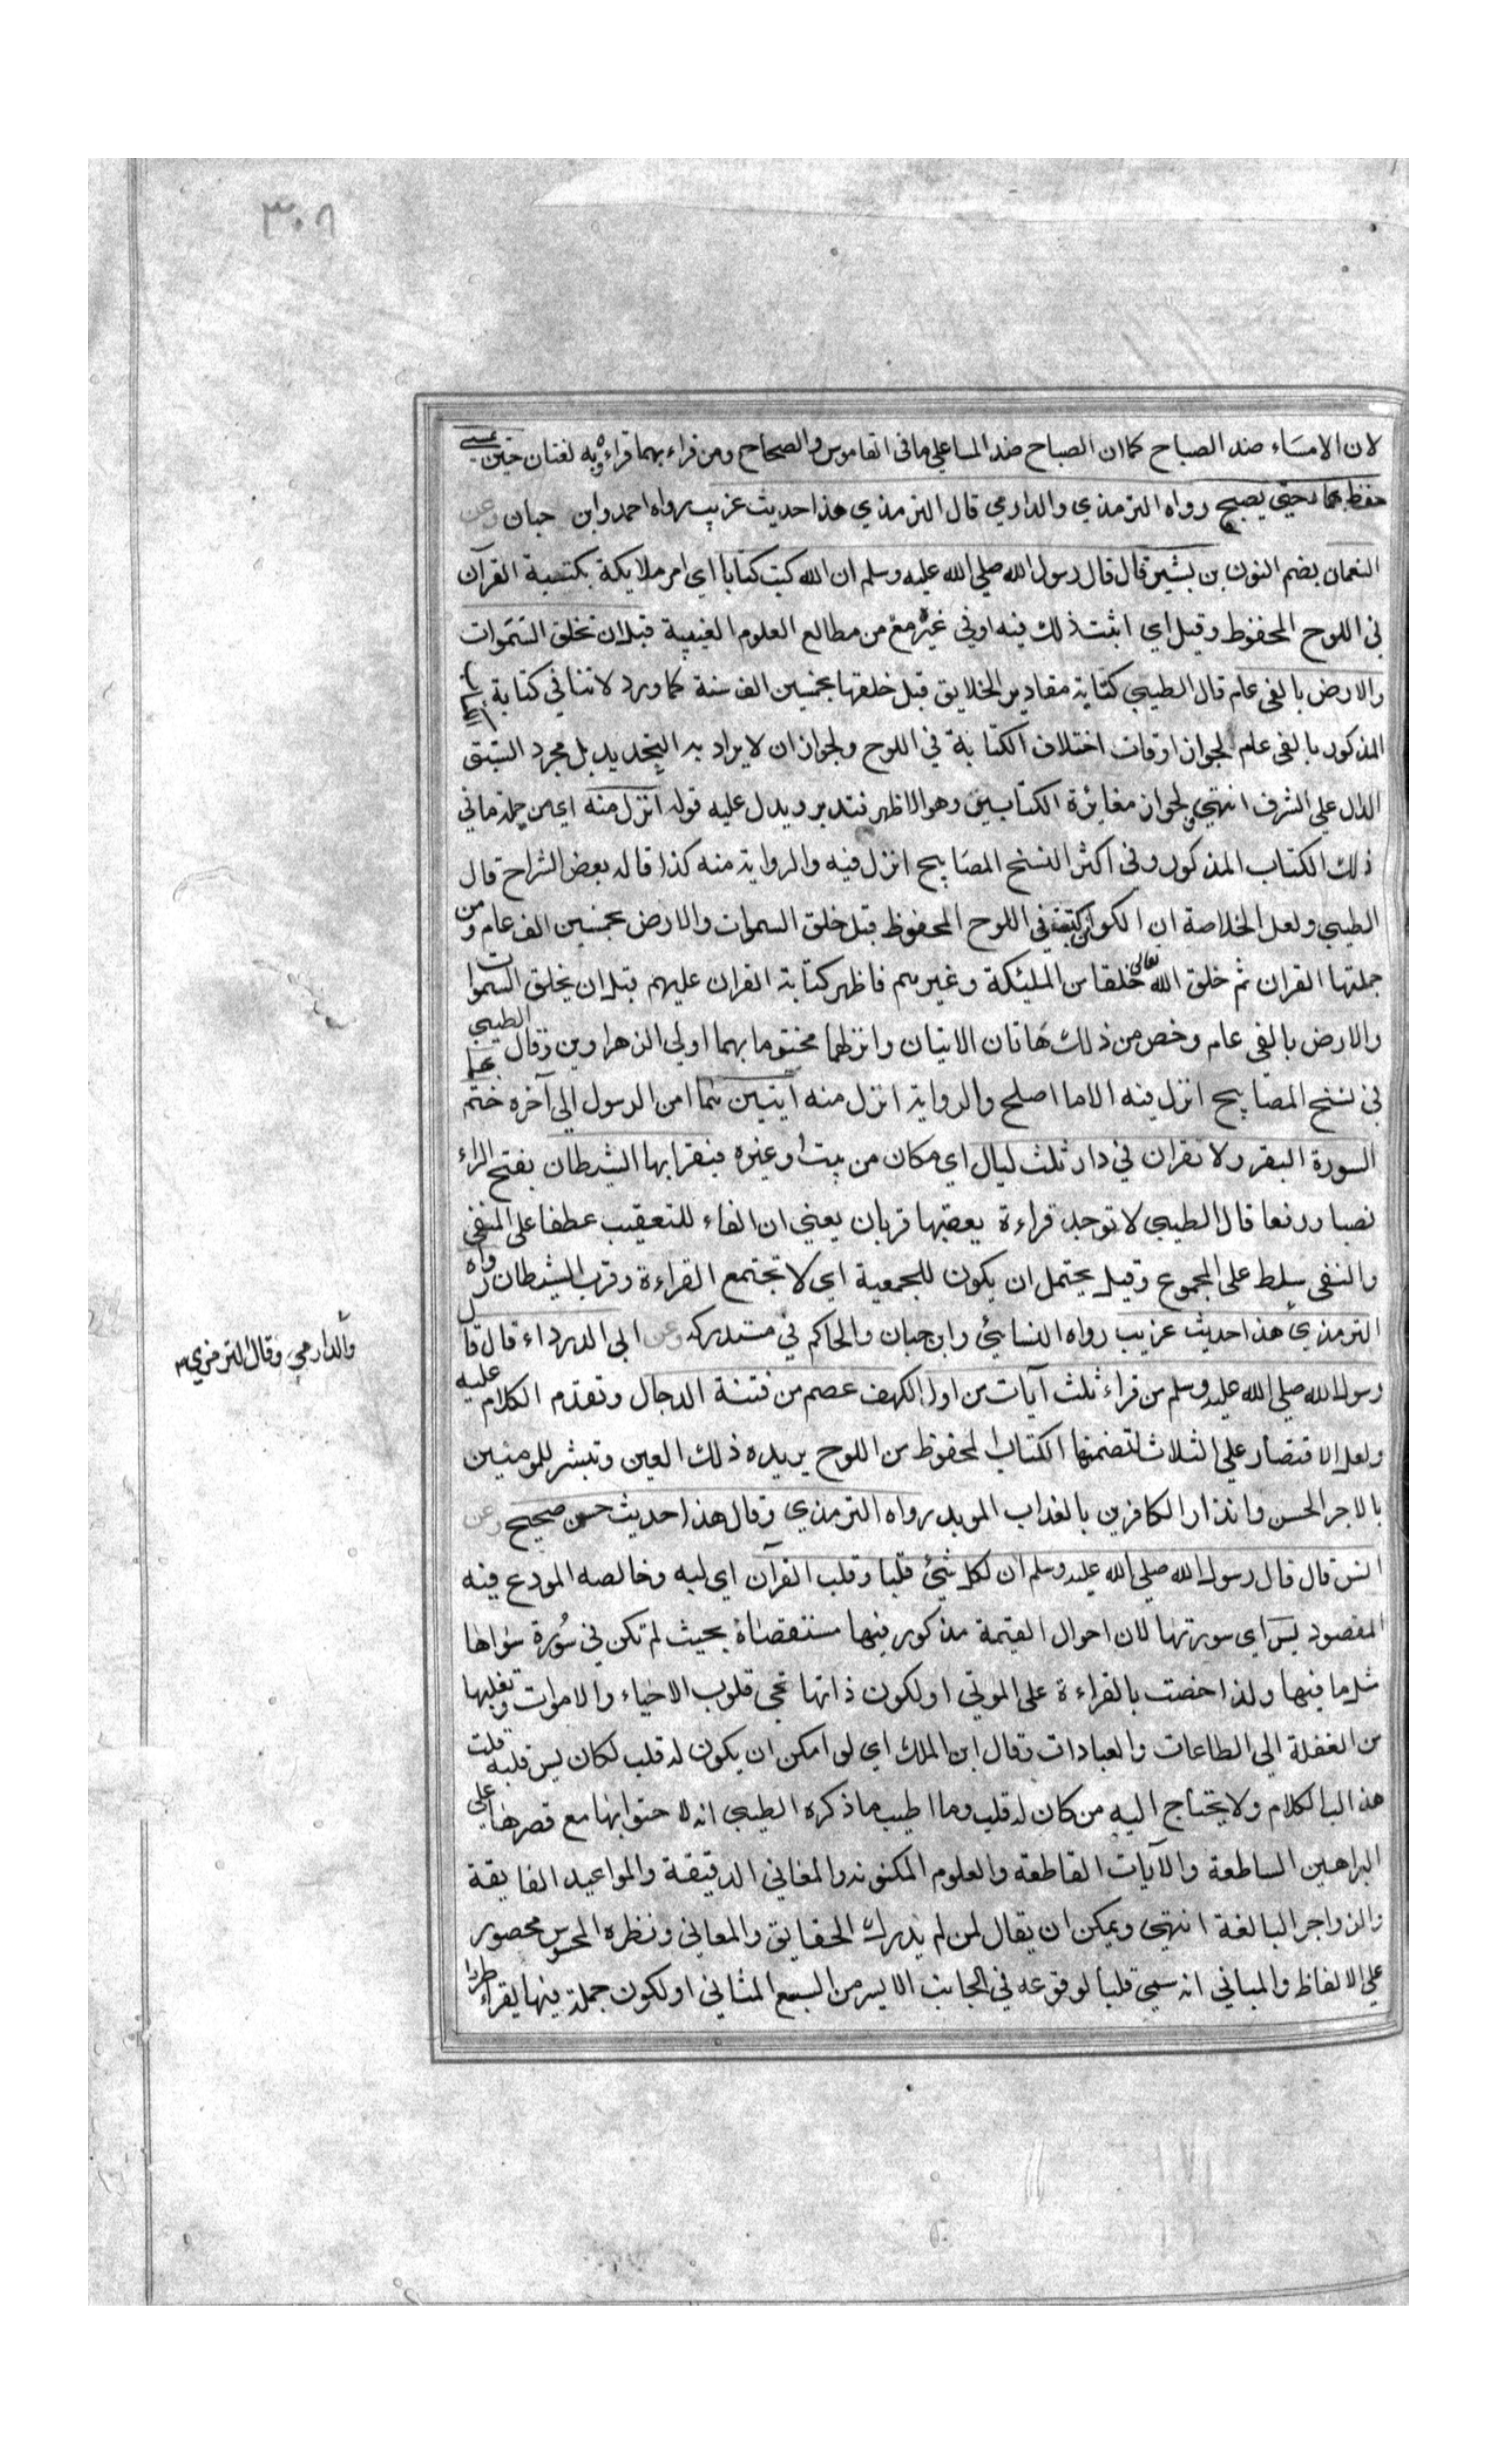 ٣٠٨
لان الامساء ضد الصباح كما ان الصباح ضد المسا على ما فى القاموس والصحاح ومن قراء بهما قراءة وبه لغتان حين يمسى
حفظ بهما حتى يصبح رواه الترمذي والدارمي قال الترمذي هذا حديث غريب رواه احمد وابن حبان وعن
النعمان بضم النون بن بشير قال قال رسول الله صلى الله عليه وسلم ان الله كتب كتابا اي امر ملايكة بكتبية القرآن
في اللوح المحفوظ وقيل اي اثبت ذلك فيه او في غيره مع من مطالع العلوم الغيبية قبل ان تخلق السموات
والارض بالفى عام قال الطيبي كتابة مقادير الخلايق قبل خلقها بخمسين الف سنة كما ورد لاتنافي كتابة
المذكور بالفى عام لجواز اوقات اختلاف الكتابة في اللوح ولجواز ان لا يراد به التحديد بل مجرد السبق
الدال على الشرف انتهى ولجواز مغايرة الكتابين وهو الاظهر فتدبر ويدل عليه قوله انزل منه اي من جملة ما في
ذلك الكتاب المذكور وفى اكثر النسخ المصابيح انزل فيه والرواية منه كذا قاله بعض الشراح قال
الطيبي ولعل الخلاصة ان الكواين كتبت في اللوح المحفوظ قبل خلق السموات والارض بخمسين الف عام ومن
جملتها القران ثم خلق الله تعالى خلقا من المليكة وغيرهم فاظهر كتابة القران عليهم قبل ان يخلق السموات
والارض بالفي عام وخص من ذلك هاتان الايتان وانزلهما مختوما بهما اولى الزهراوين وقال الطيبي
في نسخ المصابيح انزل فيه الا ما اصلح والرواية انزل منه آيتين هما امن الرسول الى آخره ختم
السورة البقر ولا تقران في دار ثلث ليال اي مكان من بيت او غيره فيقرابها الشيطان بفتح الراء
نصبا ورفعا قال الطيبي لا توجد قراءة يعقبها قربان يعني ان الفاء للتعقيب عطفا على المنفى
والنفى سلط على المجموع وقيل يحتمل ان يكون للجمعية اي لا تجتمع القراءة وقرب الشيطان رواه
الترمذي هذا حديث غريب رواه النسائي وابن حبان والحاكم في مستدركه وعن ابي الدرداء قال قال
والدارمي وقال الترمذي
رسول الله صلى الله عليه وسلم من قراء ثلث آيات من اول الكهف عصم من فتنة الدجال وتقدم الكلام عليه
ولعل الاقتصار على الثلاث لتضمنها الكتاب المحفوظ من اللوح يريده ذلك العين وتبشر للمومنين
بالاجر الحسن وانذار الكافرين بالعذاب الموبد رواه الترمذي وقال هذا حديث حسن صحيح وعن
انس قال قال رسول الله صلى الله عليه وسلم ان لكل شئ قلبا وقلب القرآن اي لبه وخالصه المودع فيه
المقصود يس اي سورتها لان احوال القيمة مذكور فيها مستقصاة بحيث لم تكن في سورة سواها
مثل ما فيها ولذا خصت بالقراءة على الموتى او لكون ذاتها تحى قلوب الاحياء والاموات وتقلبها
من الغفلة الى الطاعات والعبادات وقال ابن الملك اي لو امكن ان يكون له قلب لكان يس قلبه قلت
هذا لب الكلام ولا يحتاج اليه من كان له قلب وما اطيب ما ذكره الطيبى انه لاحتوائها مع قصرها على
البراهين الساطعة والآيات القاطعة والعلوم المكنونه والمعاني الدقيقة والمواعيد الفايقة
والزواجر البالغة انتهى ويمكن ان يقال لمن لم يدرك الحقايق والمعاني ونظره المحسوس محصور
على الالفاظ والمباني انه سمى قلبا لوقوعه في الجانب الايسر من السبع المثاني او لكون جملة فيها يقراء طردا